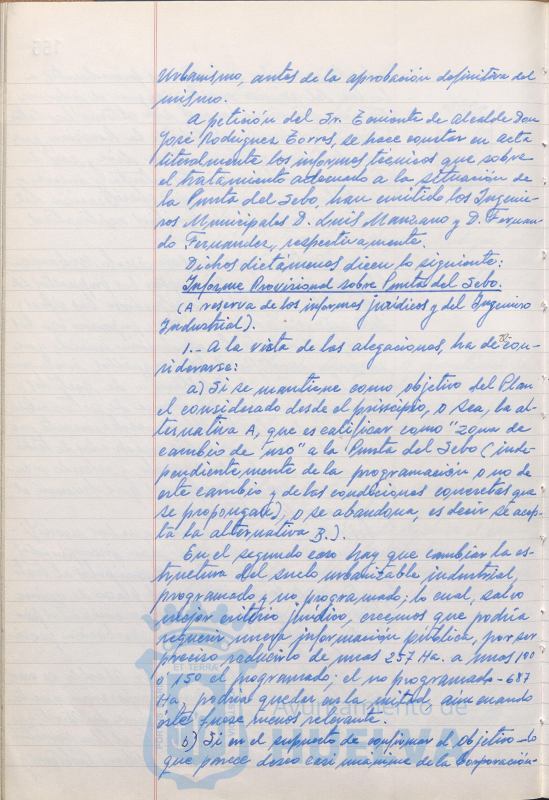 Urbanismo, antes de la aprobación definitiva del
mismo.
A petición del Sr. Teniente de Alcalde Don
José Rodríguez Torres, se hace constar en acta
literalmente los informes técnicos que sobre
el tratamiento adecuado a la situación de
la Punta del Sebo, han emitido los Ingenie-
ros Municipales D. Luis Manzano y D. Fernan-
do Fernandez, respectivamente.
Dichos dictámenes dicen lo siguiente:
Informe Provisional sobre Punta del Sebo.
(A reserva de los informes jurídicos y del Ingeniero
Industrial).
1.- A la vista de las alegaciones, ha de con-
siderarse:
a) Si se mantiene como objetivo del Plan
el considerado desde el principio, o sea, la al-
ternativa A, que es calificar como "zona de
cambio de uso" a la Punta del Sebo (inde-
pendientemente de la programación o no de
este cambio y de las condiciones concretas que
se propongan), o se abandona, es decir se acep-
ta la alternativa B.).
En el segundo caso hay que cambiar la es-
tructura del suelo urbanizable industrial,
programado y no programado; lo cual, salvo
mejor criterio jurídico, creemos que podría
requerir nueva información pública, por ser
preciso reducirlo de unas 257 Ha. a unas 100
ó 150 el programado; el no programado - 687
Ha, podría quedar en la mitad, aun cuando
este fuese menos relevante.
b) Si en el supuesto de confirmar el objetivo -lo
que parece deseo casi unánime de la Corporación-
153
Ayuntamiento de
HUELVA
ET TERRA